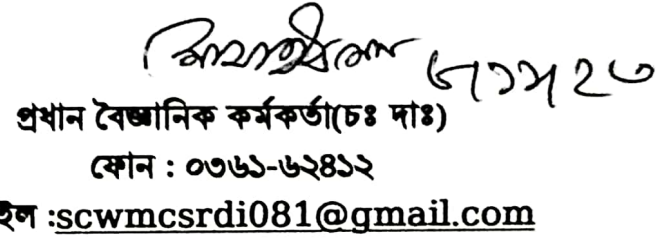 প্রধান বৈজ্ঞানিক কর্মকর্তা(চঃ দাঃ)
ফোন : ০৩৬১-৬২৪১২
ইল :scwmcsrdi081@gmail.com